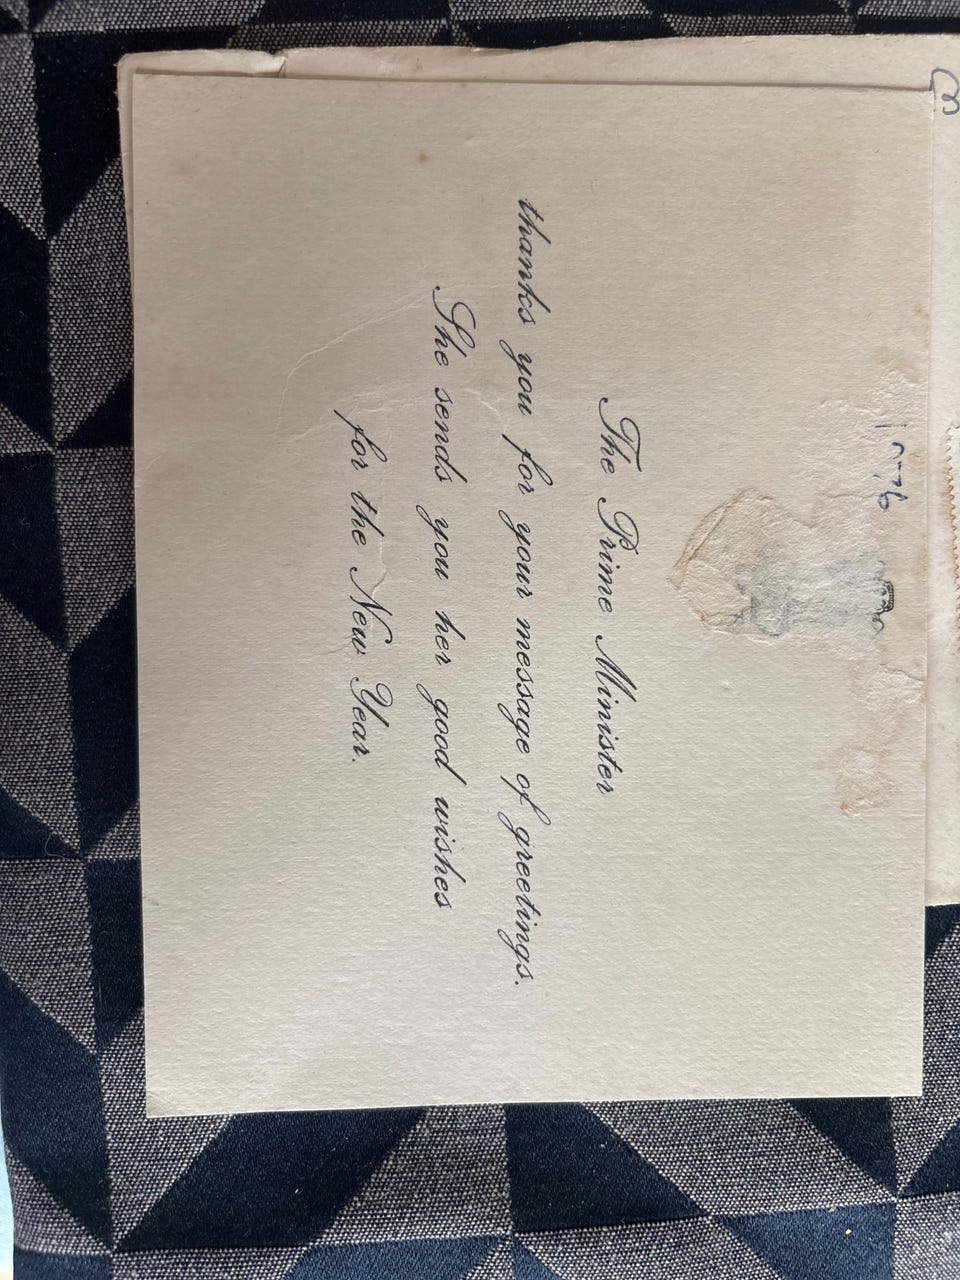 The Prime Minister
thanks you for your message of greetings.
She sends you her good wishes
for the New Year.